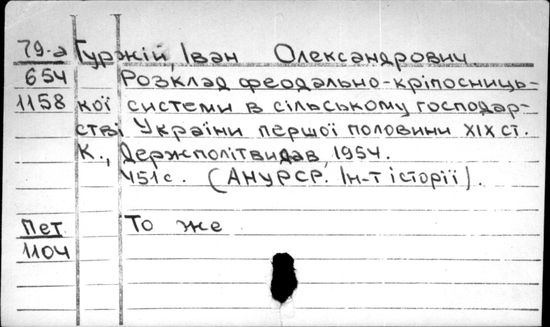 79-а Гуржій, Іван Олександрович
654 Розклад феодально-кріпосниць-
1158 кої системи в сільському господар-
стві України першої половини XIX ст.
К., Держполітвидав, 1954.
451 с. (АНУРСР. Ін-т історії).
Пет То же
1104